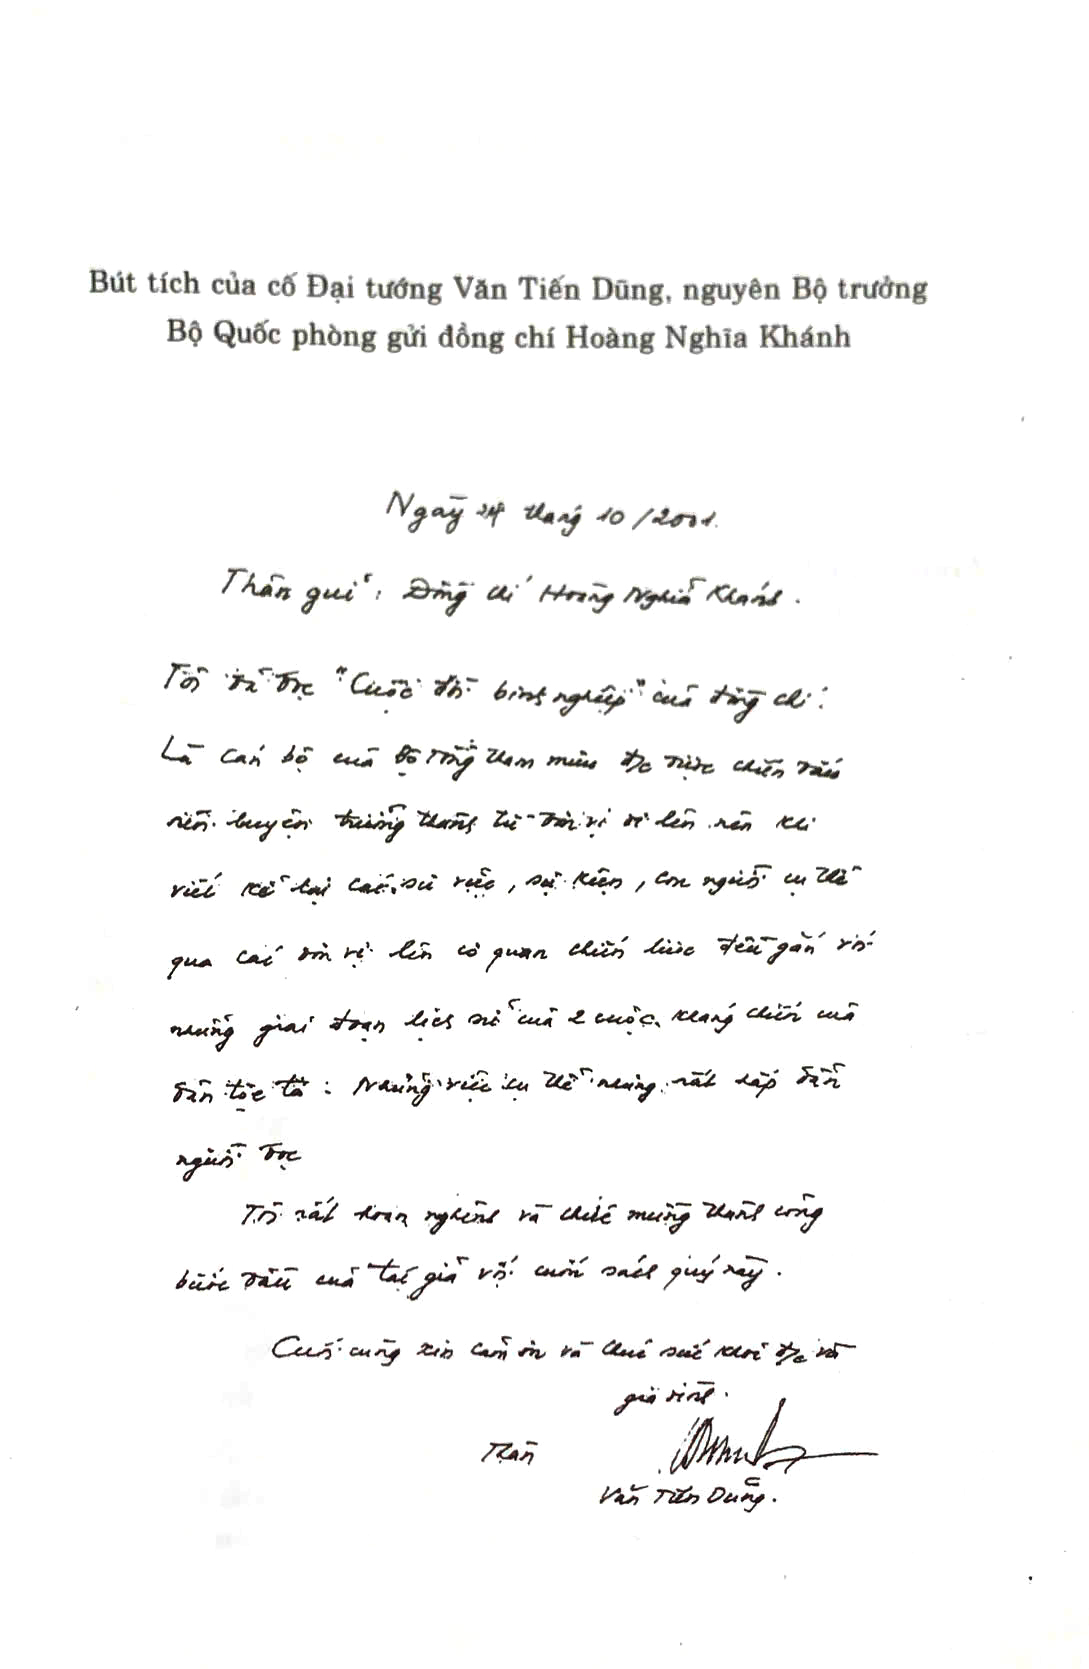 Bút tích của cố Đại tướng Văn Tiến Dũng, nguyên Bộ trưởng
Bộ Quốc phòng gửi đồng chí Hoàng Nghĩa Khánh
Ngày 24 tháng 10/2001.
Thân gửi: Đồng chí Hoàng Nghĩa Khánh.
Tôi đã đọc "Cuộc đời binh nghiệp" của đồng chí.
Là cán bộ của Bộ Tổng tham mưu đ/c được chiến đấu
rèn luyện trưởng thành từ đơn vị đi lên nên khi
viết kể lại các sự việc, sự kiện, con người cụ thể
qua các đơn vị lên cơ quan chiến lược đều gắn với
những giai đoạn lịch sử của 2 cuộc kháng chiến của
dân tộc ta: Những việc cụ thể nhưng rất hấp dẫn
người đọc
Tôi rất hoan nghênh và chúc mừng thành công
bước đầu của tác giả với cuốn sách quý này.
Cuối cùng xin cảm ơn và chúc sức khỏe đ/c và
gia đình.
Thân
Văn Tiến Dũng.